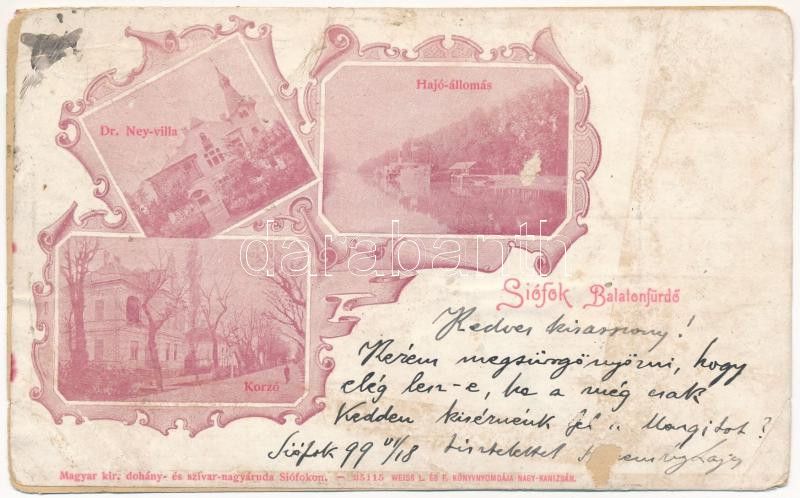 Dr. Ney-villa
Hajó-állomás
Korzó
darabanth
Siófok Balatonfürdő
Kedves kisasszony!
Kérem megsürgönyözni, hogy
elég lesz-e, ha a még csak
Kedden kisérnénk fel Margitot?
Siófok 99 VI/18 tisztelettel Lajos
Magyar kir. dohány- és szivar-nagyáruda Siófokon. — 35115 WEISS L. ÉS F. KÖNYVNYOMDÁJA NAGY-KANIZSÁN.